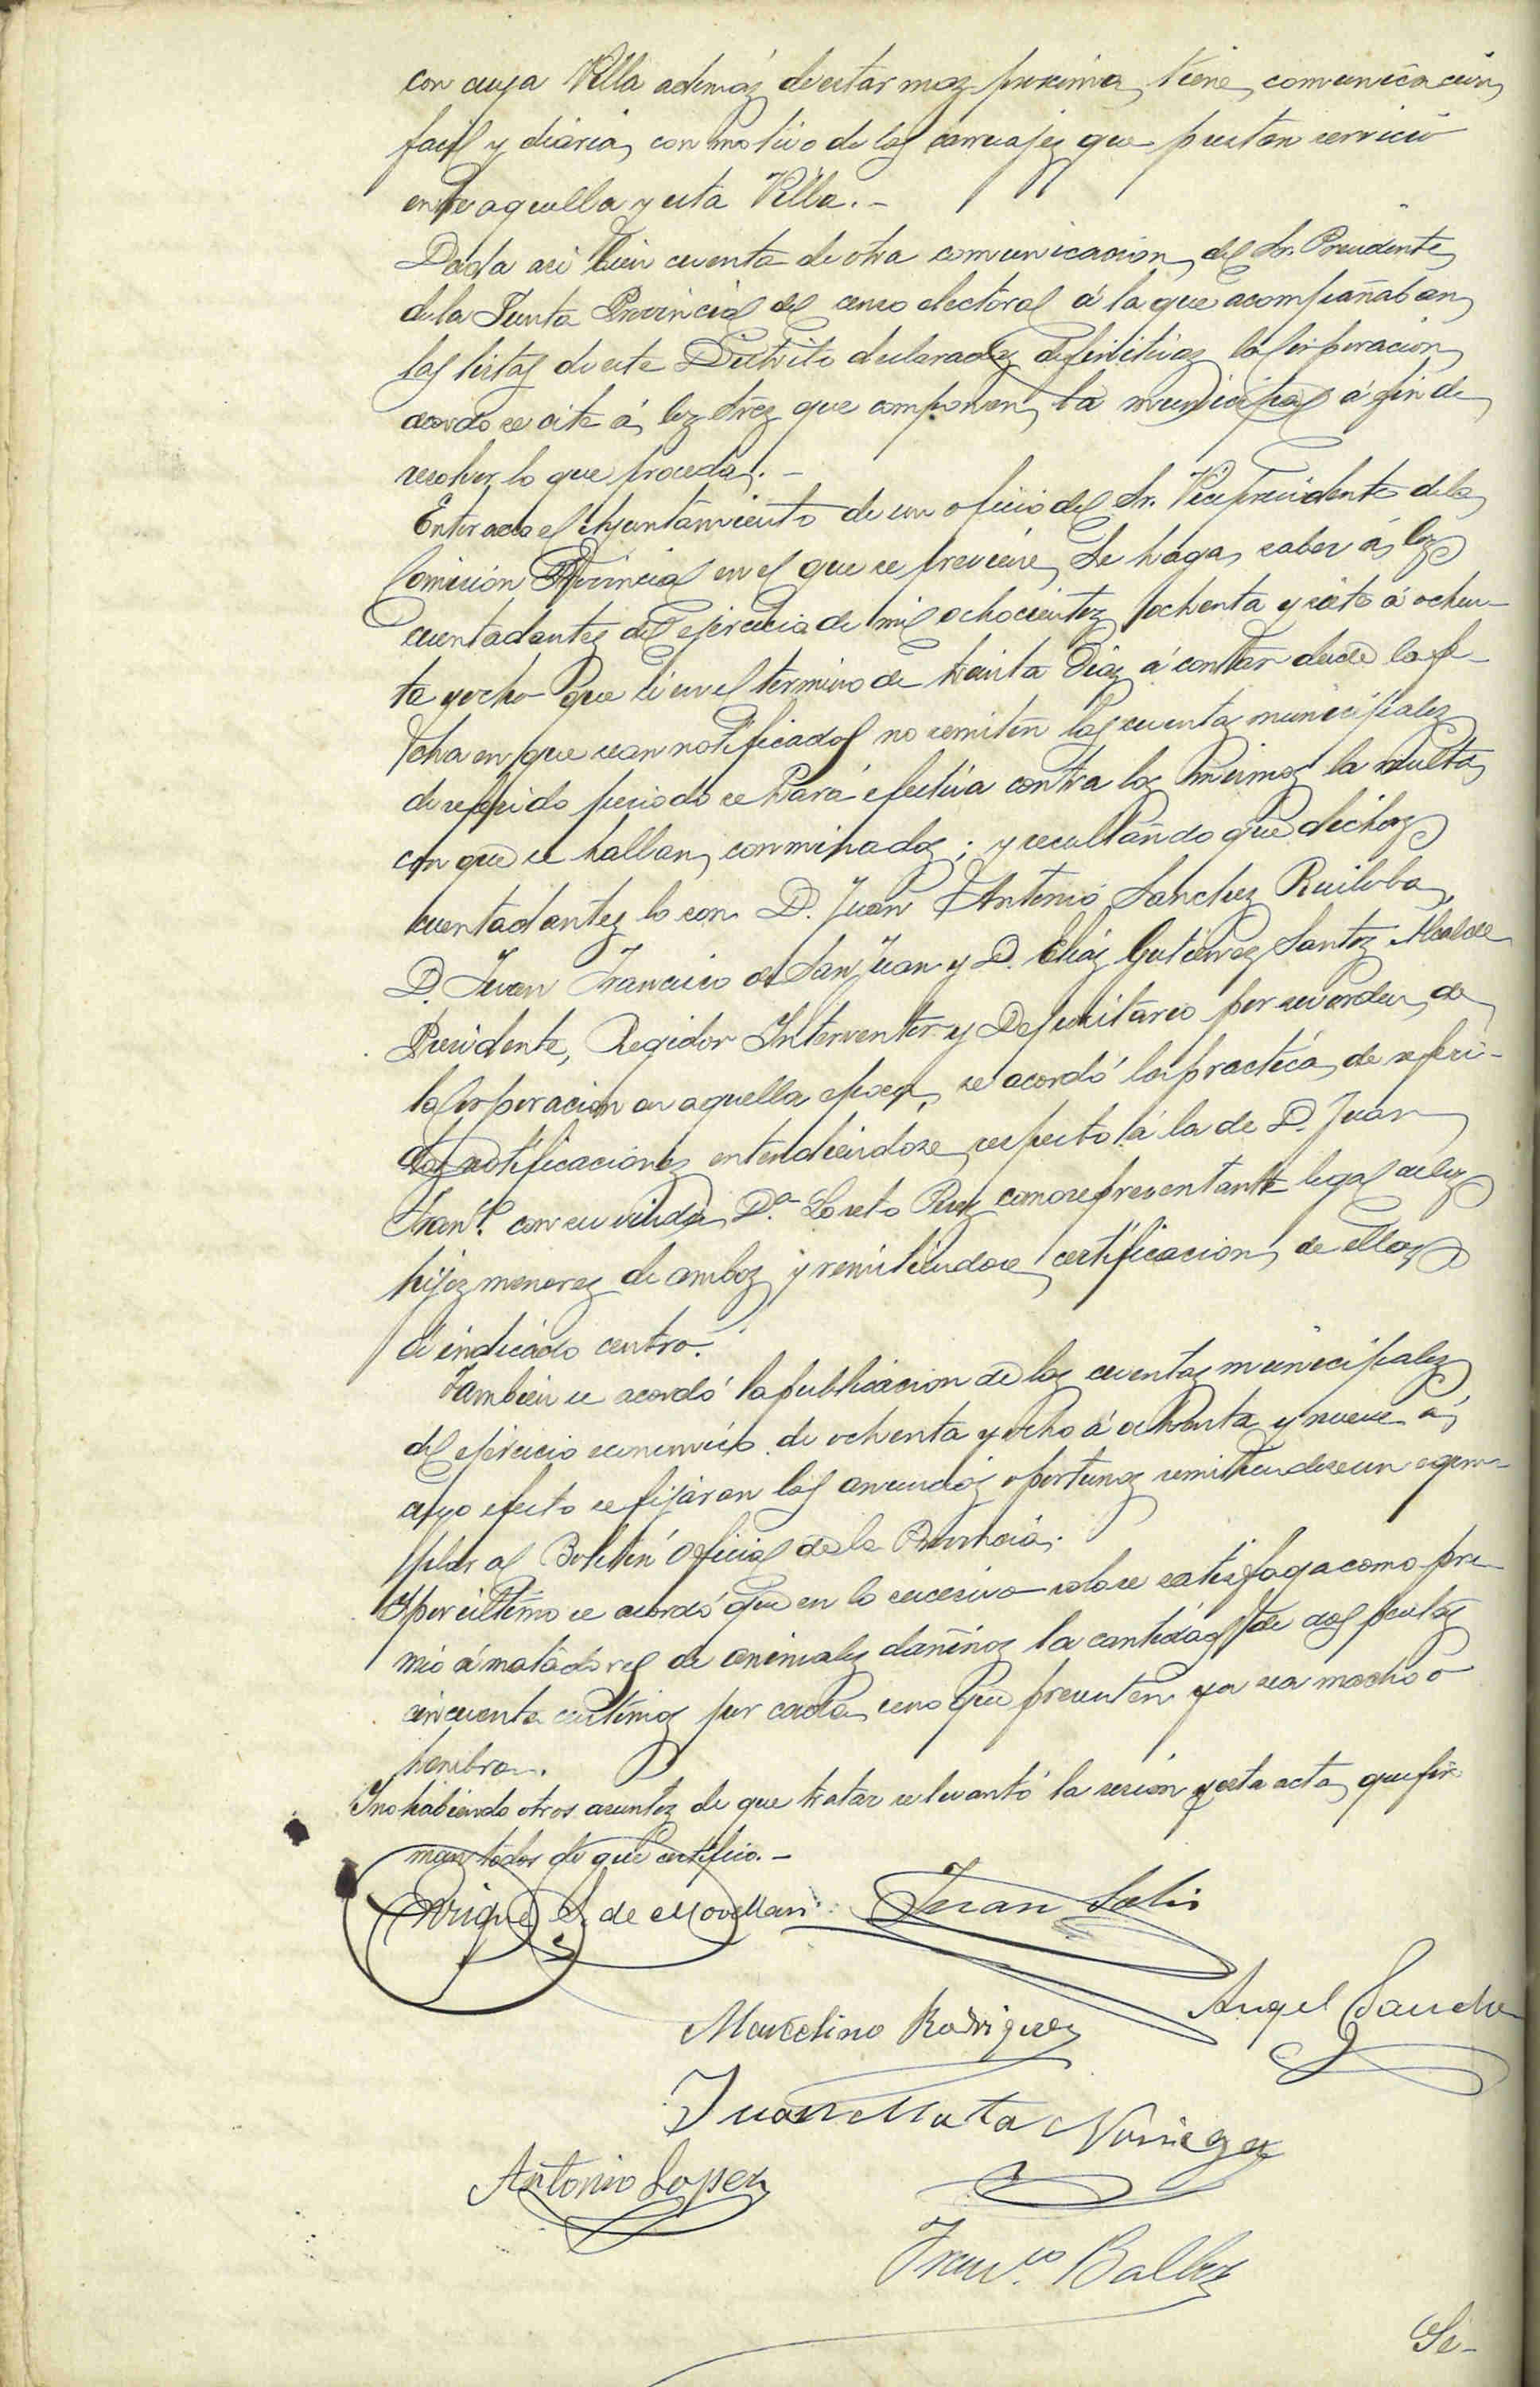 con cuya Villa además de estar mas proxima, tiene comunicacion
facil y diaria, con motivo de los carruajes que prestan servicio
entre aquella y esta Villa.-
Dada asi bien cuenta de otra comunicacion, del Sr. Presidente
de la Junta Provincial del censo electoral á la que acompañaban
las listas de este Distrito declaradas definitivas la Corporacion
acordo se cite á los Sres que componen, la municipal á fin de
resolver lo que proceda.-
Enterado el Ayuntamiento de un oficio del Sr. Vicepresidente de la
Comisión Provincial en el que se previene, se haga, saber á, los
cuentadantes del ejercicio de mil ochocientos, ochenta y siete á ochen-
ta y ocho que si en el termino de treinta dias á contar desde la fe-
cha en que sean notificados no remiten las cuentas municipales
de referido periodo se hará efectiva contra los mismos la multa
con que se hallan, conminados; y resultando que dichos
cuentadantes lo son D. Juan Antonio Sanchez Ruiloba,
D. Juan Francisco de San Juan y D. Elias Gutierrez Santos Alcalde
Presidente, Regidor Interventor y Depositario por su orden, de
la Corporacion en aquella epoca, se acordó la practica, de referi-
das notificaciones entendiendose, respecto á la de D. Juan
Franco. con su viuda, Da. Loreto Ruiz como representante legal de los
hijos menores de ambos y remitiendose, certificacion, de ellas
al indicado centro.
Tambien se acordó la publicacion de las cuentas municipales
del ejercicio economico de ochenta y ocho á ochenta y nueve á,
cuyo efecto se fijaran los anuncios oportunos remitiendose un egem-
plar al Boletin Oficial de la Provincia.
Y por ultimo se acordó que en lo sucesivo solo se satisfaga como pre-
mio á matadores de animales dañinos la cantidad de dos pesetas
cincuenta centimos por cada, uno que presenten ya sea macho o
hembra.
Y no habiendo otros asuntos de que tratar se levantó la sesion y esta acta, que fir-
man todos de que certifico.-
Enrique S. de Movellan Juan Solis
Marcelino Rodriguez Angel Sanchez
Juan Mata Noriega
Antonio Lopez
Franco. Balbas
Se-